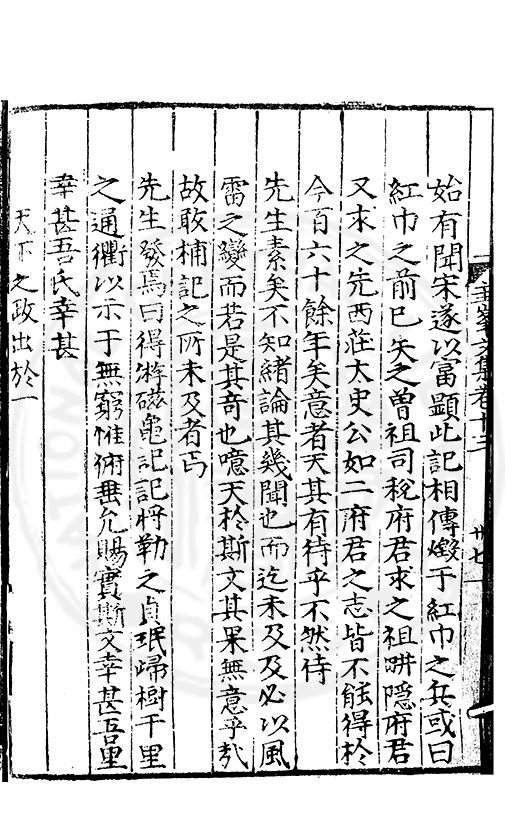 圭峯文集卷十二
卅七
始有聞宋遂以富顯此記相傳燬于紅巾之兵或曰
紅巾之前已失之曾祖司稅府君求之祖畊隱府君
又求之先西莊太史公如二府君之志皆不能得於
今百六十餘年矣意者天其有待乎不然侍
先生素矣不知緒論其幾聞也而迄未及及必以風
雷之變而若是其奇也噫天於斯文其果無意乎哉
故敢補記之所未及者丐
先生發焉曰得游磁龜記記將勒之貞珉歸樹千里
之通衢以示于無窮惟俯垂允賜實斯文幸甚吾里
幸甚吾氏幸甚
天下之政出於一